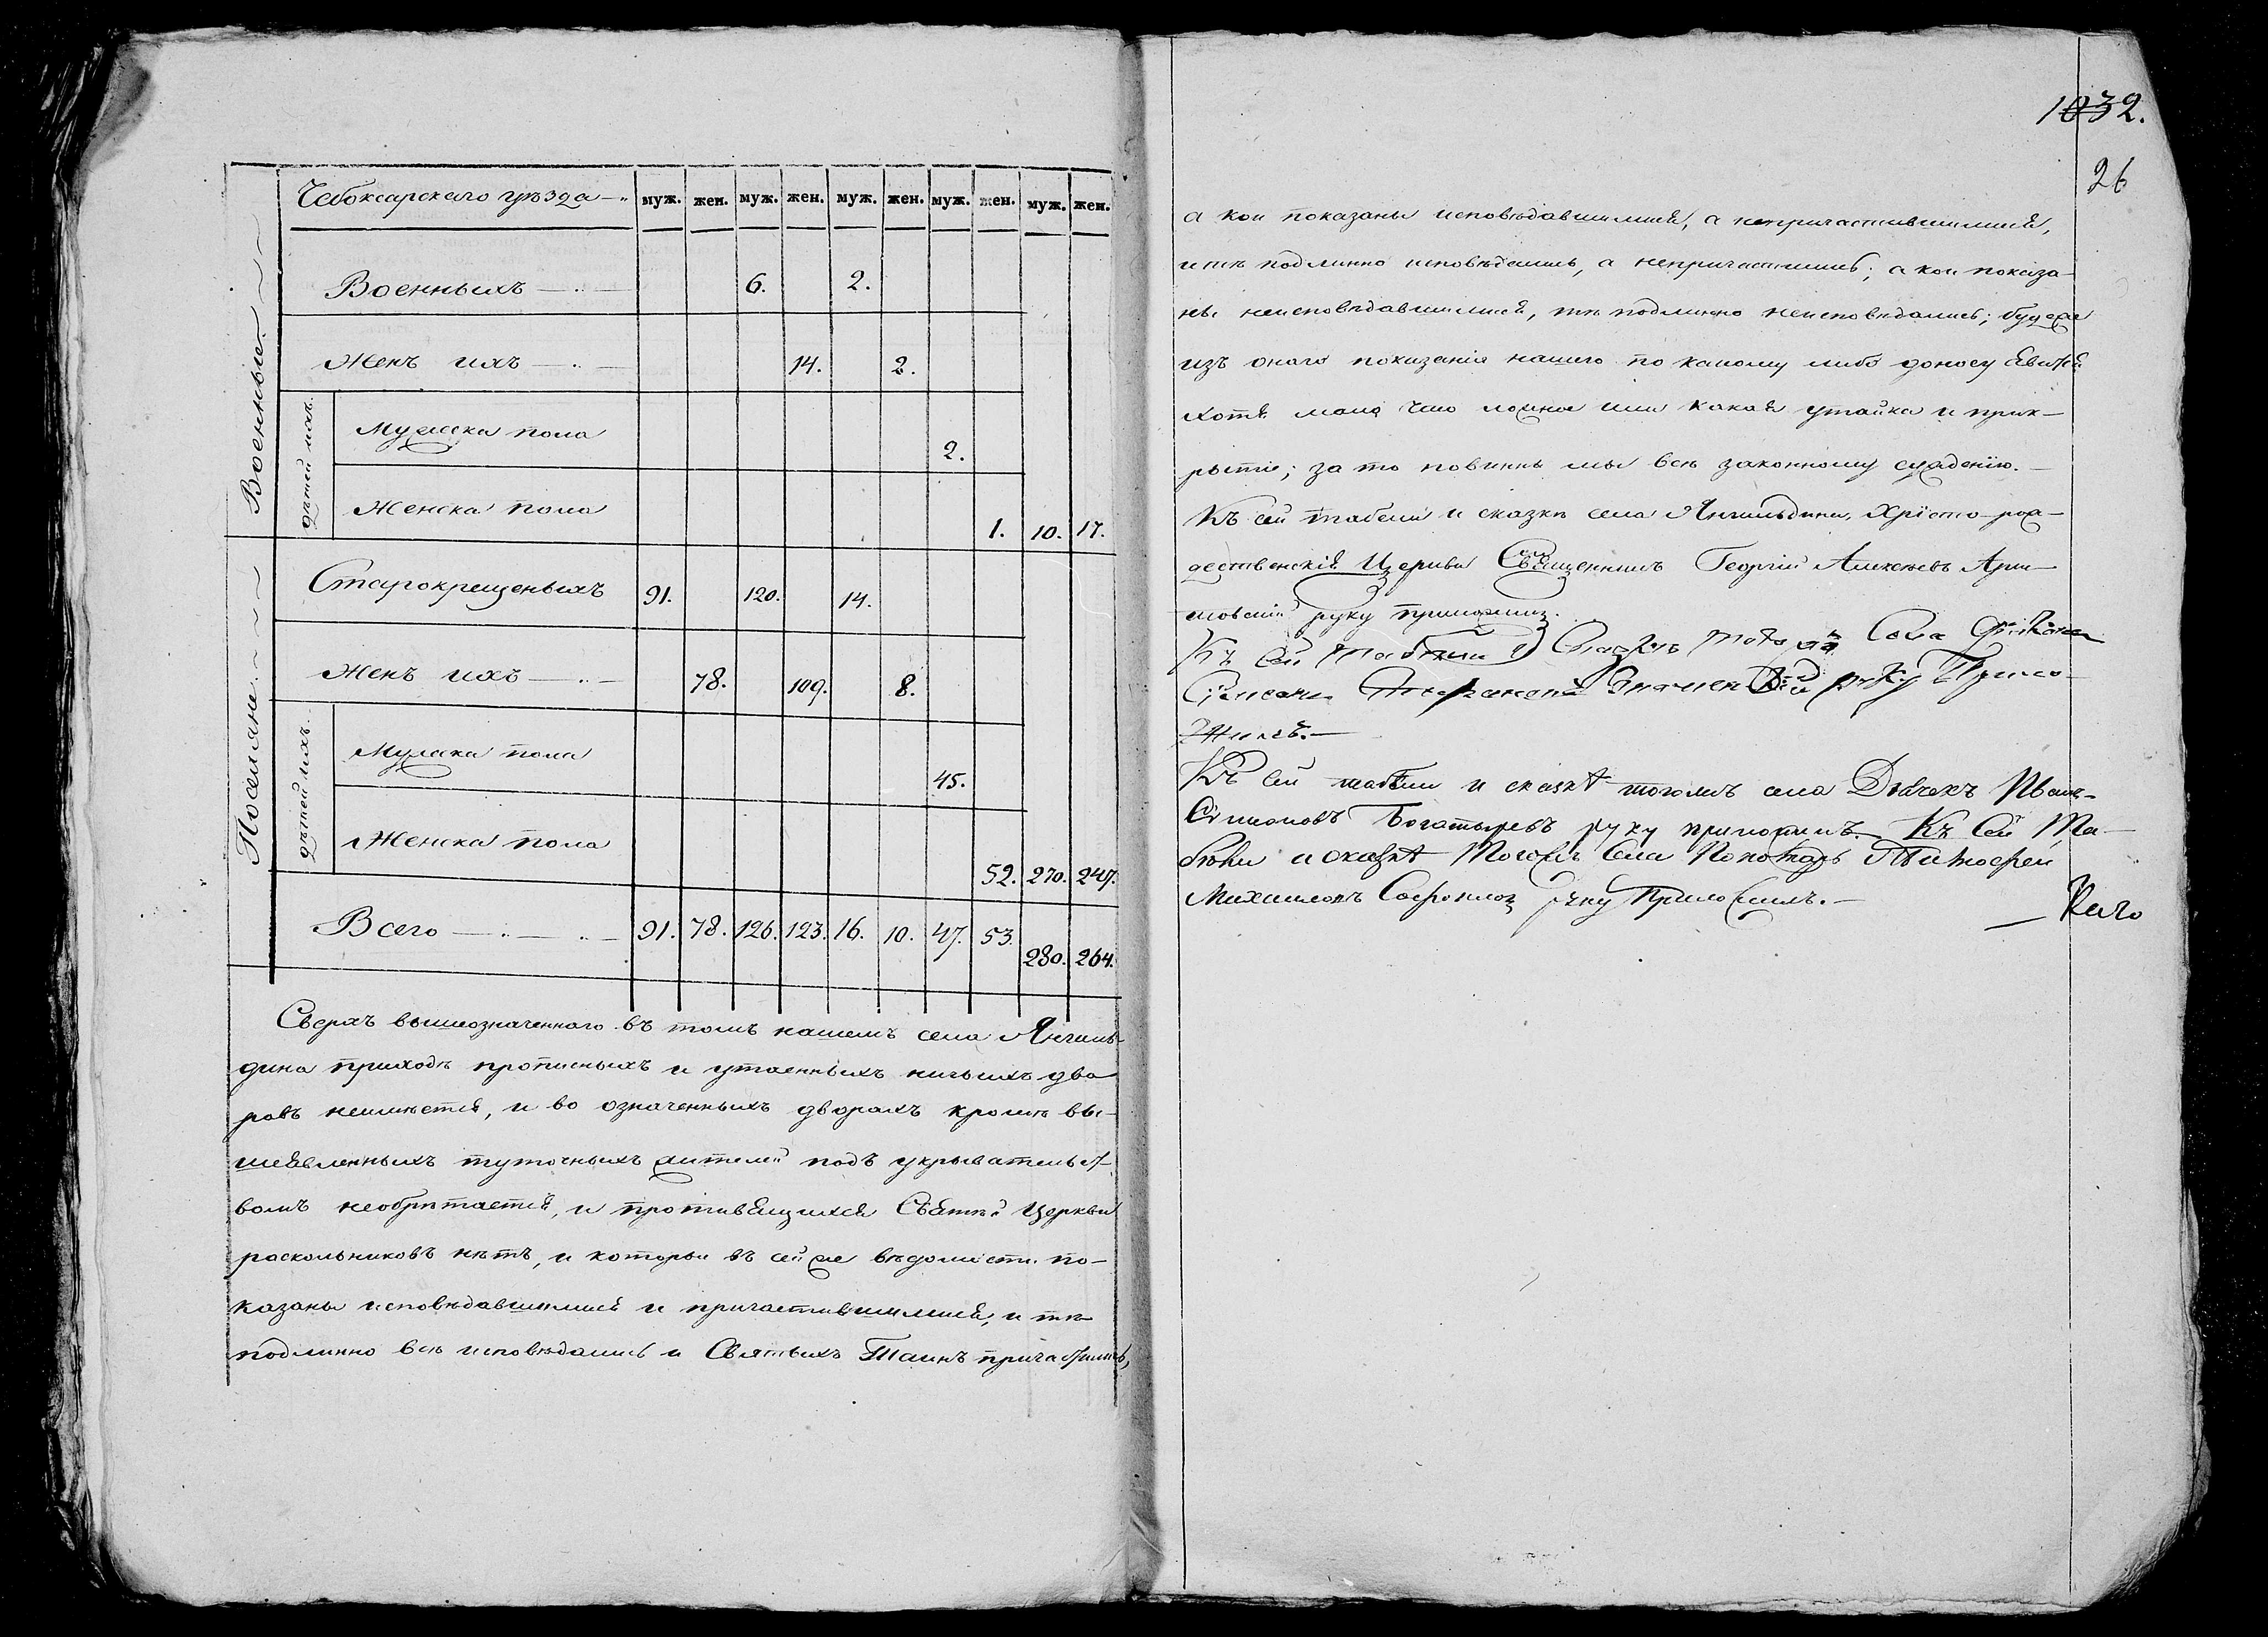 Чебоксарскаго уѣзда муж. жен. муж. жен. муж. жен. муж. жен. муж. жен.
Военные.
Военныхъ 6. 2.
Женъ ихъ 14. 2.
Дѣтей ихъ.
Мужеска пола 2.
Женска пола 1. 10. 17.
Поселяне.
Старокрещеныхъ 91. 120. 14.
Женъ ихъ 78. 109. 8.
Дѣтей ихъ.
Мужеска пола 45.
Женска пола 52. 270. 247.
Всего 91. 78. 126. 123. 16. 10. 47. 53. 280. 264.
Сверхъ вышеозначеннаго въ томъ нашемъ села Янгиль-
дина приходѣ прописныхъ и утаенныхъ ничьихъ дво
ровъ неимѣется, и во означенныхъ дворахъ кромѣ вы-
шеявленныхъ туточныхъ жителей подъ укрывательст-
вомъ необрѣтается, и противящихся Святѣй Церкви
раскольниковъ нѣтъ, и которыи въ сей же вѣдомости по-
казаны исповѣдавшимися и причастившимися, и тѣ
подлинно всѣ исповѣдались и Святыхъ Таинъ причастились,
1032.
26
а кои показаны исповѣдавшимися, а непричастившимися,
и тѣ подлинно исповѣдались, а непричастились; а кои показа-
ны неисповѣдавшимися, тѣ подлинно неисповѣдались; буде же
изъ онаго показанія нашего по какому либо доносу явится
хотя мало что ложное или какая утайка и прик-
рытіе; за то повинны мы всѣ законному суждению.
Къ сей табели и сказкѣ села Янгильдина, Христо-рож-
дественскія Церкви Священникъ Георгій Алексеевъ
руку приложилъ.
Къ сей табели и сказкѣ тогожъ села
руку Прило-
жилъ.
Къ сей табели и сказкѣ тогожъ села Дьячекъ Иванъ
Симионовъ Богатыревъ руку приложилъ. Къ Сей Та-
бели и сказкѣ Тогожъ Села Пономарь Тимофей
Михаиловъ руку Приложилъ.